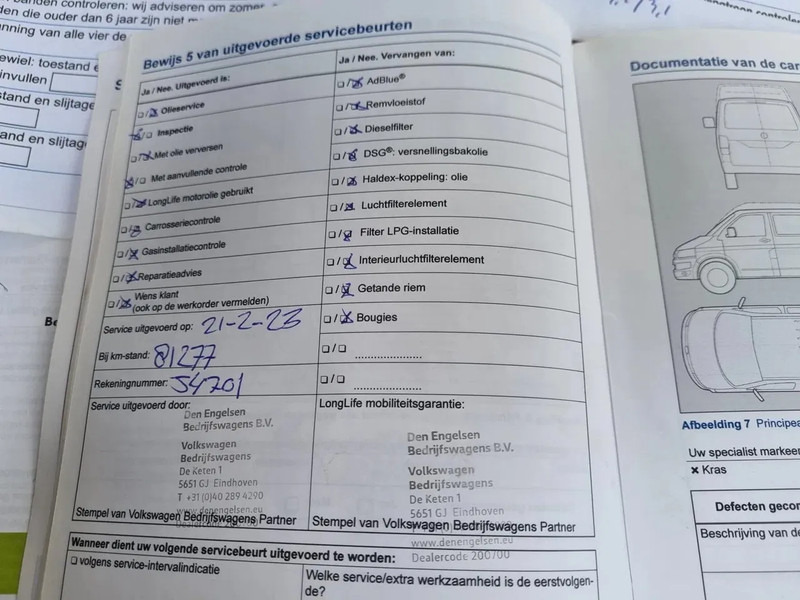 banden controleren: wij adviseren om
den die ouder dan 6 jaar zijn niet
nning van alle vier de
ewiel: toestand e
invullen
stand en slijtage
and en slijtag
Bewijs 5 van uitgevoerde servicebeurten
Ja / Nee. Uitgevoerd is:
❏ / ❏ Olieservice
❏ / ❏ Inspectie
❏ / ❏ Met olie verversen
❏ / ❏ Met aanvullende controle
❏ / ❏ LongLife motorolie gebruikt
❏ / ❏ Carrosseriecontrole
❏ / ❏ Gasinstallatiecontrole
❏ / ❏ Reparatieadvies
❏ / ❏ Wens klant
(ook op de werkorder vermelden)
Service uitgevoerd op: 21-2-23
Bij km-stand: 81277
Rekeningnummer: 54701
Service uitgevoerd door:
Den Engelsen
Bedrijfswagens B.V.
Volkswagen
Bedrijfswagens
De Keten 1
5651 GJ Eindhoven
T +31 (0)40 289 4290
www.denengelsen.eu
Stempel van Volkswagen Bedrijfswagens Partner
Ja / Nee. Vervangen van:
❏ / ❏ AdBlue®
❏ / ❏ Remvloeistof
❏ / ❏ Dieselfilter
❏ / ❏ DSG®: versnellingsbakolie
❏ / ❏ Haldex-koppeling: olie
❏ / ❏ Luchtfilterelement
❏ / ❏ Filter LPG-installatie
❏ / ❏ Interieurluchtfilterelement
❏ / ❏ Getande riem
❏ / ❏ Bougies
❏ / ❏ ....................
❏ / ❏ ....................
LongLife mobiliteitsgarantie:
Den Engelsen
Bedrijfswagens B.V.
Volkswagen
Bedrijfswagens
De Keten 1
5651 GJ Eindhoven
Stempel van Volkswagen Bedrijfswagens Partner
www.denengelsen.eu
Dealercode 200700
Wanneer dient uw volgende servicebeurt uitgevoerd te worden:
❏ volgens service-intervalindicatie
Welke service/extra werkzaamheid is de eerstvolgen-
de?
Documentatie van de car
Afbeelding 7 Principea
Uw specialist markeer
× Kras
Defecten gecon
Beschrijving van de